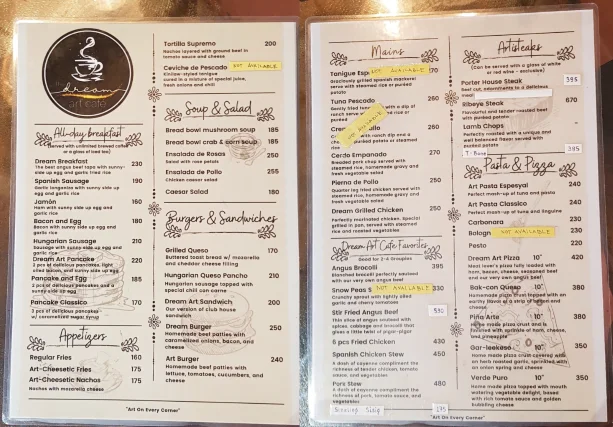 dream
art cafe
All-day breakfast
(Served with unlimited brewed coffee
or a glass of iced tea)
Dream Breakfast 230
The best angus beef tapa with sunny-
side up egg and garlic fried rice
Spanish Sausage 190
Garlic longanisa with sunny side up
egg and garlic rice
Jamón 160
Ham with sunny side up egg and
garlic rice
Bacon and Egg 180
Bacon with sunny side up egg and
garlic rice
Hungarian Sausage 210
Sausage with sunny side up egg and
garlic rice
Dream Art Pancake 220
2 pcs of delicious pancakes, light
oiled bacon, and sunny side up egg
Pancake and Egg 185
2 pcs of delicious pancakes and a
sunny side up egg
Pancake Classico 170
3 pcs of delicious pancakes
w/ caramelized sugar syrup
Appetizers
Regular Fries 160
Art-Cheesetic Fries 175
Art-Cheesetic Nachos 175
Nachos with mozarella cheese
Tortilla Supremo 200
Nachos layered with ground beef in
tomato sauce and cheese
Ceviche de Pescado NOT AVAILABLE
Kinilaw-styled tanigue
cured in a mixture of special juice,
fresh onions and chili
Soup & Salad
Bread bowl mushroom soup 185
Bread bowl crab & corn soup 185
Ensalada de Rosas 250
Salad with rose petals
Ensalada de Pollo 255
Chicken caesar salad
Caesar Salad 180
Burgers & Sandwiches
Grilled Queso 170
Buttered toast bread w/ mozarella
and cheddar cheese filling
Hungarian Queso Pancho 210
Hungarian sausage topped with
special chili con carne
Dream Art Sandwich 200
Our version of club house
sandwich
Dream Burger 250
Homemade beef patties with
caramelized onions, bacon, and
cheese
Art Burger 240
Homemade beef patties with
lettuce, tomatoes, cucumbers, and
cheese
"Art On Every Corner"
Mains
Tanigue Esp NOT AVAILABLE 70
Graciously grilled spanish mackerel
serve with steamed rice or pureed
potato
Tuna Pescado 260
Gently fried tuna with a dip of
ranch serve with steamed rice or
pureed
NOT AVAILABLE
260
with ranch dip and a
potato or steamed
rice
Cerdo Empanado 270
Breaded pork chop served with
steamed rice, homemade gravy and
fresh vegetable salad
Pierna de Pollo 250
Quarter leg fried chicken served with
steamed rice, homemade gravy and
fresh vegetable salad
Dream Grilled Chicken 250
Perfectly marinated chicken, special
grilled in pan, served with steamed
rice and roasted vegetables
Dream Art Cafe Favorites
Good for 2-4 Grouples
Angus Brocolli 385
Blanched brocolli perfectly sauteed
with our very own angus beef
Snow Peas S NOT AVAILABLE 330
Crunchy sprout with lightly oiled
garlic and cherry tomatoes
Stir Fried Angus Beef 530
Thin slice of angus sauteed with
spices, cabbage and brocolli that
gives a little twist of pigar-pigar
6 pcs Fried Chicken 430
Spanish Chicken Stew 450
A dash of cayenne compliment the
richness of tender chicken, tomato
sauce, and vegetables
Pork Stew 480
A dash of cayenne compliment the
richness of pork, tomato sauce, and
vegetables
Sizzling Sisig 295
Artisteaks
(Can be served with a glass of white
or red wine - exclusive)
Porter House Steak 395
Beef cut, nourishments to a delicious
meal
Ribeye Steak 670
Flavourful and tender roasted beef
with pureed potato
Lamb Chops
Perfectly roasted with a unique and
well balanced flavor served with
pureed potato
T-Bone 395
Pasta & Pizza
Art Pasta Espesyal 240
Perfect mash-up of tuna and pasta
Art Pasta Classico 240
Perfect mash-up of tuna and linguine
Carbonara 230
Bologn NOT AVAILABLE 230
Pesto 220
Dream Art Pizza 10" 420
Meat lover's pizza fully loaded with
ham, bacon, cheese, seasoned beef
and our very own angus beef
Bak-con Queso 10" 380
Homemade pizza crust topped with an
earthy blend of a strip of bacon and
cheese
Piña Arte 10" 380
Home made pizza crust and is
flavored with sprinkle of ham, cheese,
and pineapple
Gar-leekeso 10" 350
Home made pizza crust covered with
an herb roasted garlic, sprinkled with
an onion spring and cheese
Verde Puro 10" 350
Home made pizza topped with mouth
watering vegetable delight, based
with rich tomato sauce and golden
bubbling cheese
"Art On Every Corner"